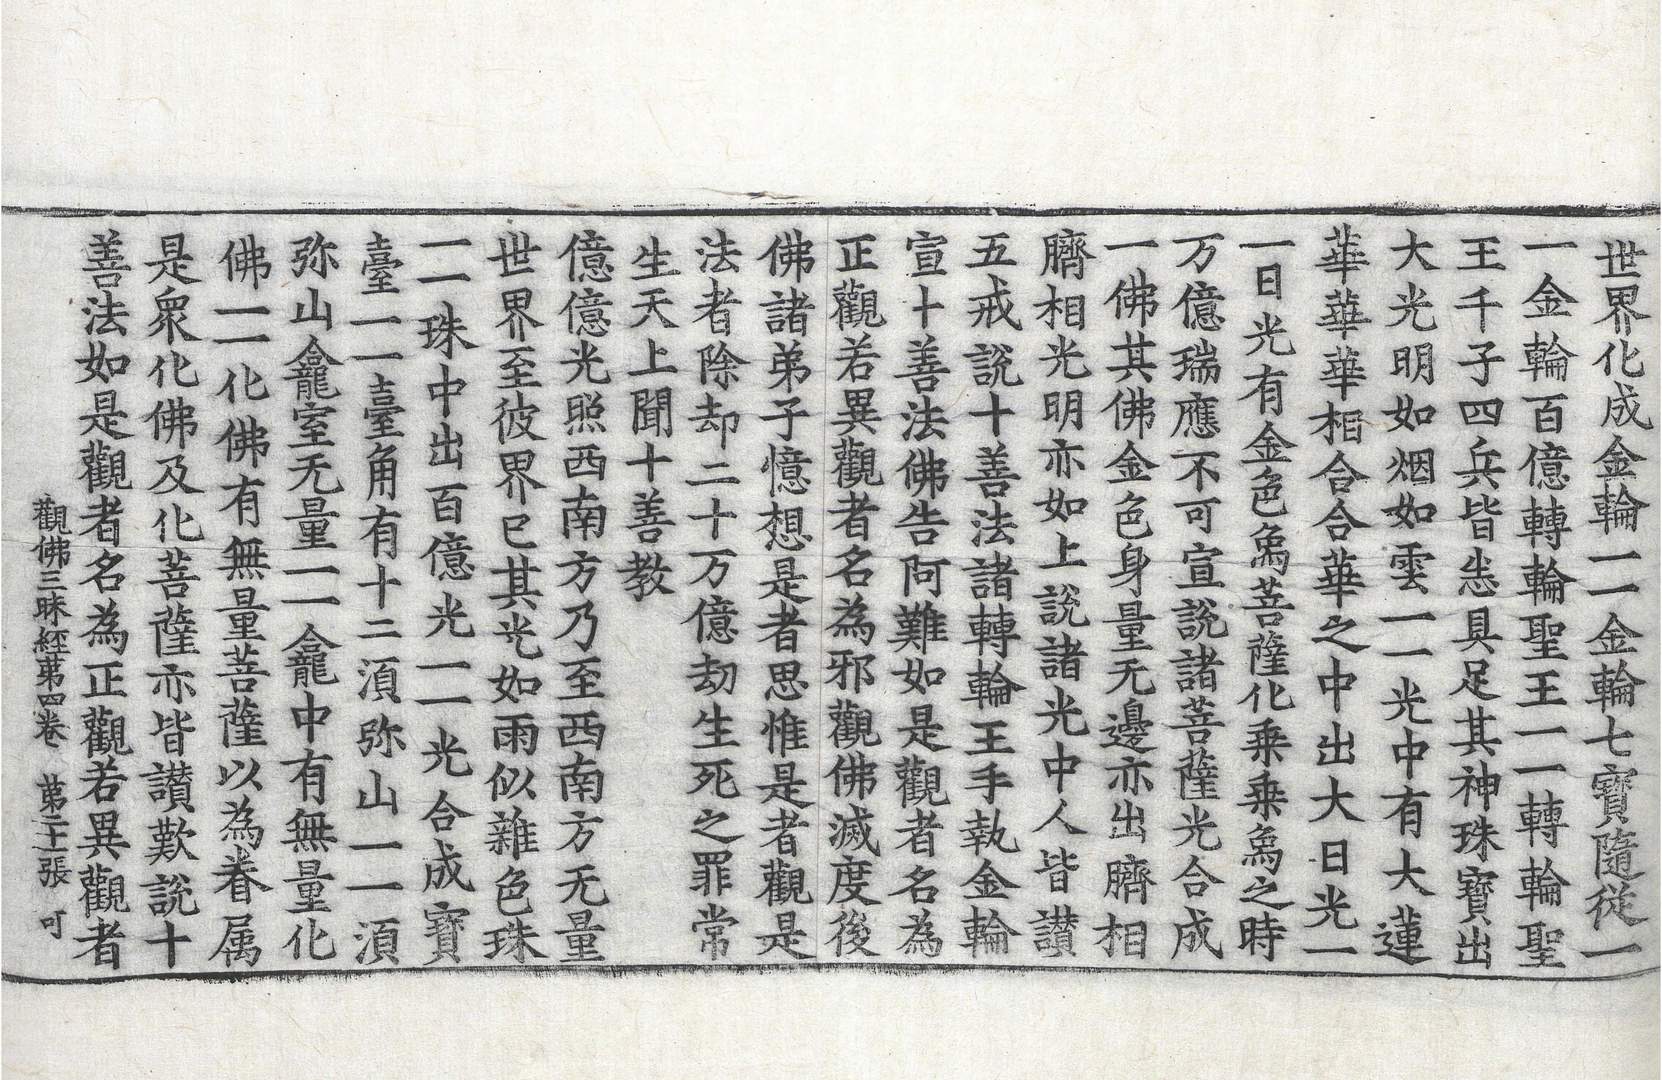 世界化成金輪一一金輪七寶隨從一
一金輪百億轉輪聖王一一轉輪聖
王千子四兵皆悉具足其神珠寶出
大光明如烟如雲一一光中有大蓮
華華華華相合合華之中出大日光一
一日光有金色烏菩薩化乗乗烏之時
万億瑞應不可宣説諸菩薩光合成
一佛其佛金色身量无邊亦出臍相
臍相光明亦如上説諸光中人皆讃
五戒説十善法諸轉輪王手執金輪
宣十善法佛告阿難如是觀者名為
正觀若異觀者名為邪觀佛滅度後
佛諸弟子憶想是者思惟是者觀是
法者除却二十万億劫生死之罪常
生天上聞十善教
億億光照西南方乃至西南方无量
世界至彼界已其光如雨似雜色珠
一一珠中出百億光一一光合成寶
臺一一臺角有十二湏弥山一一湏
弥山龕室无量一一龕中有無量化
佛一一化佛有無量菩薩以為眷属
是衆化佛及化菩薩亦皆讃歎説十
善法如是觀者名為正觀若異觀者
觀佛三昧經第四卷 第二十一張 可